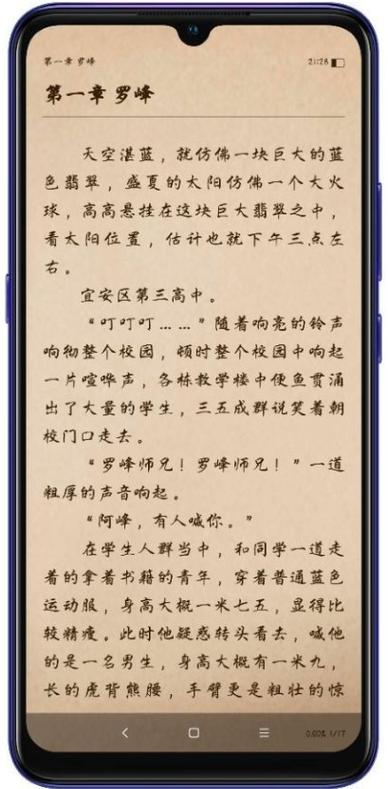 第一章 罗峰
21:28
第一章 罗峰
天空湛蓝，就仿佛一块巨大的蓝
色翡翠，盛夏的太阳仿佛一个大火
球，高高悬挂在这块巨大翡翠之中，
看太阳位置，估计也就下午三点左
右。
宜安区第三高中。
“叮叮叮……”随着响亮的铃声
响彻整个校园，顿时整个校园中响起
一片喧哗声，各栋教学楼中便鱼贯涌
出了大量的学生，三五成群说笑着朝
校门口走去。
“罗峰师兄！罗峰师兄！”一道
粗厚的声音响起。
“阿峰，有人喊你。”
在学生人群当中，和同学一道走
着的拿着书籍的青年，穿着普通蓝色
运动服，身高大概一米七五，显得比
较精瘦。此时他疑惑转头看去，喊他
的是一名男生，身高大概有一米九，
长的虎背熊腰，手臂更是粗壮的惊
0.00% 1/17